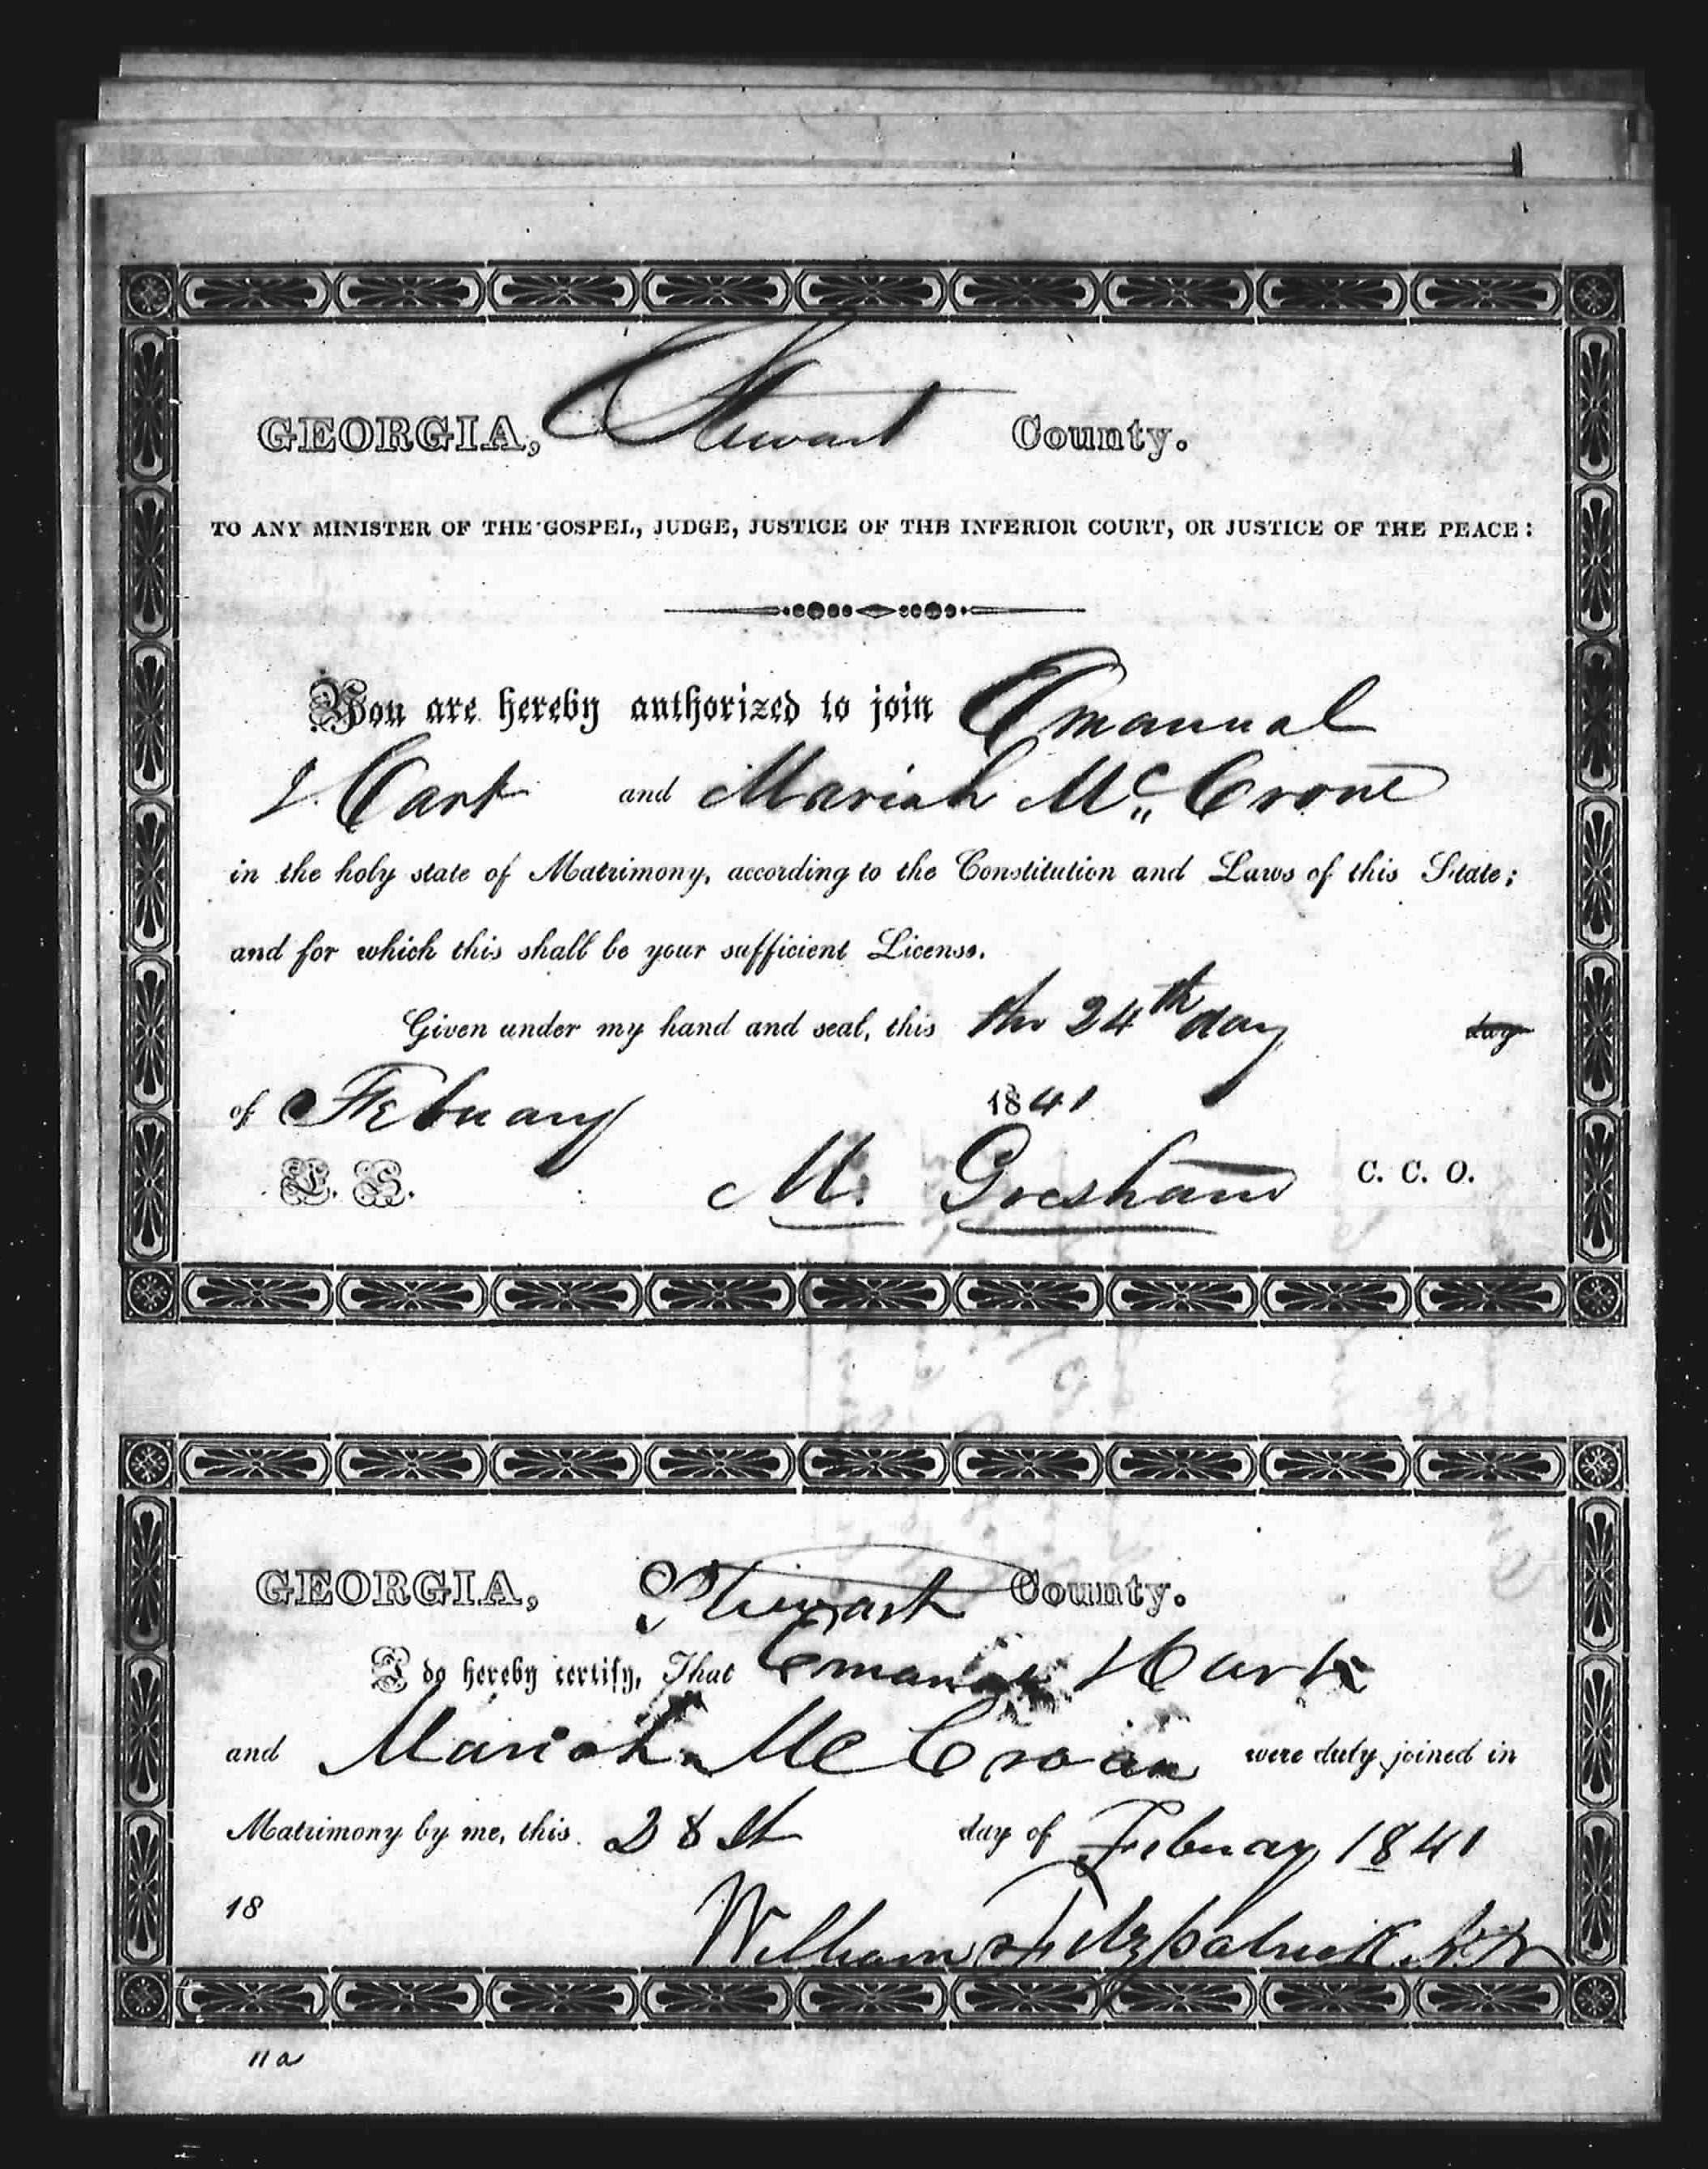 GEORGIA, Stewart County.
TO ANY MINISTER OF THE GOSPEL, JUDGE, JUSTICE OF THE INFERIOR COURT, OR JUSTICE OF THE PEACE:
You are hereby authorized to join Emanual
J. Cart and Mariah Mc. Crone
in the holy state of Matrimony, according to the Constitution and Laws of this State;
and for which this shall be your sufficient License.
Given under my hand and seal, this the 24th day day
of Febuary 1841
L. S. M. Gresham C. C. O.
GEORGIA, Stewart County.
I do hereby certify, That Hart
and Mariah Mc were duly joined in
Matrimony by me, this 28st day of Febuary 1841
18 William Fitzpatrick
11 a